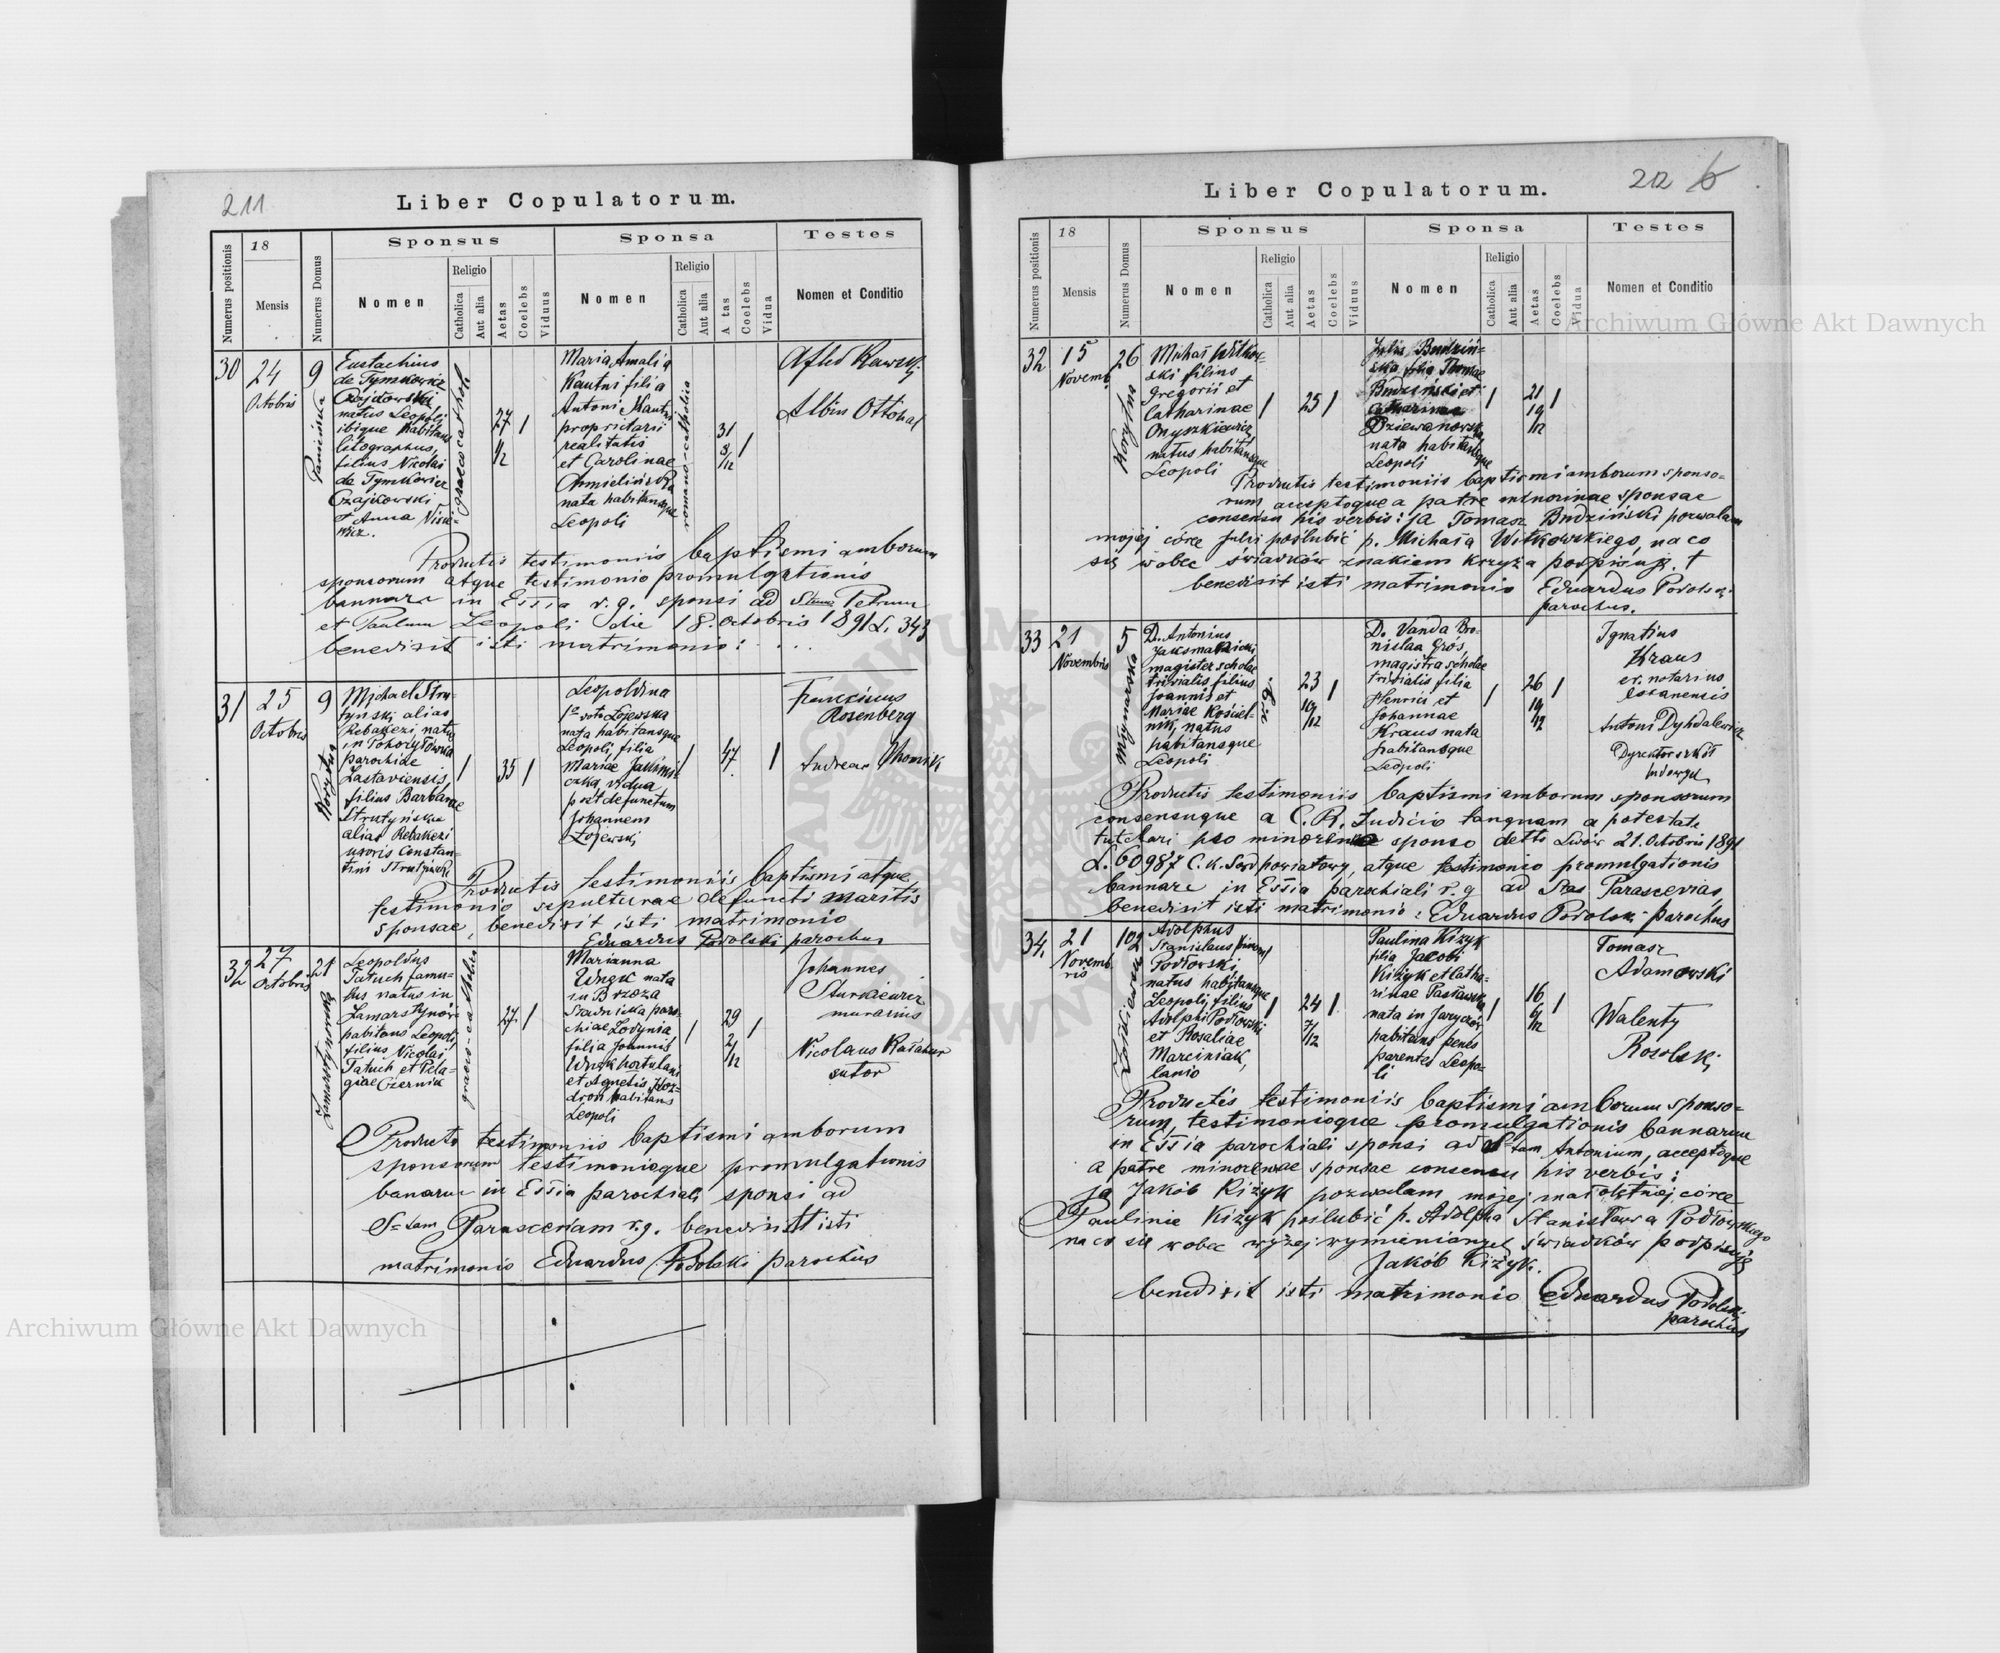 211
Liber Copulatorum.
Numerus positionis
18
Mensis
Numerus Domus
Sponsus
Nomen
Religio
Catholica
Aut alia
Aetas
Coelebs
Viduus
Sponsa
Nomen
Religio
Catholica
Aut alia
A tas
Coelebs
Vidua
Testes
Nomen et Conditio
30
24
Octobris
9
Panieńska
Eustachius
de Tymkowicz
Czajkowski
natus Leopoli
ibique habitans
litographus,
filius Nicolai
de Tymkowicz
Czajkowski
et Anna Nisie-
wicz.
graeco cathol
27
1/2
1
Maria Amalia
Kautni filia
Antoni Kautni
proprietarii
realitatis
et Carolinae
Chmielińska
nata habitansque
Leopoli
romano-catholica
31
8/12
1
Albin Ottomal
Productis testimoniis baptismi amborum
sponsorum atque testimonio promulgationis
bannorum in Essia r. g. sponsi ad Stum Petrum
et Paulum Leopoli die 18. Octobris 1891 L. 343
benedixit isti matrimonio: . . .
31
25
Octobris
9
Korytna
Michael Stru-
tyński alias
Rebakezi, natus
in
parochiae
Zastaviensis,
filius Barbarae
Strutyńska
alias Rebakezi
uxoris Constan-
tini Strutyński
/
35
1
Leopoldina
1o voto Łojewska
nata habitansque
Leopoli, filia
Mariae
vidua
post defunctum
Johannem
Łojewski
/
47
1
Franciscus
Rosenberg
Andreas Chomik
Productis testimoniis baptismi atque
testimonio sepulturae defuncti mariti
sponsae, benedixit isti matrimonio
Eduardus Podolski parochus
32
27
Octobris
21
Zamarstynowska
Leopoldus
Tatuch famu-
lus natus in
Zamarstynów
habitans Leopoli,
filius Nicolai
Tatuch et Pela-
giae Czernik
graeco-catholicus
27
1
Marianna
Wnęk nata
in Brzoza
Stadnicka paro-
chiae Żołynia
filia Joannis
Wnęk hortulani
et Agnetis Koz-
droń habitans
Leopoli
/
29
2/12
1
Johannes
Sturkiewicz
murarius
Nicolaus
sutor
Productis testimoniis baptismi amborum
sponsorum testimonioque promulgationis
banorum in Essia parochiali sponsi ad
S-tam Parascevam r. g. benedixit isti
matrimonio Eduardus Podolski parochus
212 b
Liber Copulatorum.
Numerus positionis
18
Mensis
Numerus Domus
Sponsus
Nomen
Religio
Catholica
Aut alia
Aetas
Coelebs
Viduus
Sponsa
Nomen
Religio
Catholica
Aut alia
Aetas
Coelebs
Vidua
Testes
Nomen et Conditio
32
15
Novemb
26
Korytna
Michał Witkow-
ski filius
Gregorii et
Catharinae
Onyszkiewicz,
natus habitansque
Leopoli
/
25
1
Julia Budziń-
ska filia Thomae
Budziński et
Catharinae
Dziewanowska
nata habitansque
Leopoli
/
21
19/12
1
Productis testimoniis baptismi amborum sponso-
rum acceptoque a patre minorinae sponsae
consensu his verbis: ja Tomasz Budziński pozwalam
mojej córce Julii poślubić p. Michała Witkowskiego, na co
się wobec świadków znakiem krzyża podpisuję. †
benedixit isti matrimonio Eduardus Podolski
parochus.
33
21
Novembris
5
Młynarska
D. Antonius
magister scholae
trivialis filius
Joannis et
Mariae Kościel-
nik, natus
habitansque
Leopoli
23
10/12
1
D. Vanda Bro-
nislaa Grós
magistra scholae
trivialis filia
Henrici et
Johannae
Kraus nata
habitansque
Leopoli
/
26
10/12
1
Ignatius
Kraus
Antoni Dyhdalewicz
Dyrektor szkół
ludowych
Productis testimoniis baptismi amborum sponsorum
consensuque a C. R. Judicio tanquam a potestate
tutelari pro minorenne sponso detto Lwów 21. Octobris 1891
L. 60987 C. k. Sąd powiatowy, atque testimonio promulgationis
bannorum in Essia parochiali r. g ad Stas Parascevias,
benedixit isti matrimonio: Eduardus Podolski parochus
34.
21
Novemb
ris
102
Żółkiewska
Adolphus
Stanislaus
Podłowski,
natus habitansque
Leopoli, filius
Adolphi Podłowski
et Rosaliae
Marciniak,
lanio
/
24
7/12
1
Paulina Kiżyk
filia Jacobi
Kiżyk et Catha-
rinae Pasławska
nata in Jaryczów
habitans penes
parentes Leopo-
li
/
16
6/12
1
Tomasz
Adamowski
Walenty
Rosolski
Productis testimoniis baptismi amborum sponso-
rum, testimonioque promulgationis bannorum
in Essia parochiali sponsi ad S-tum Antonium, acceptoque
a patre minorennae sponsae consensu his verbis:
ja Jakób Kiżyk pozwalam mojej małoletniej córce
Paulinie Kiżyk poślubić p. Adolfa Stanisława Podłowskiego
na co się wobec wyżej wymienionych świadków podpisuję
Jakób Kiżyk.
benedixit isti matrimonio Eduardus Podolski
parochus
Archiwum Główne Akt Dawnych
Archiwum Główne Akt Dawnych